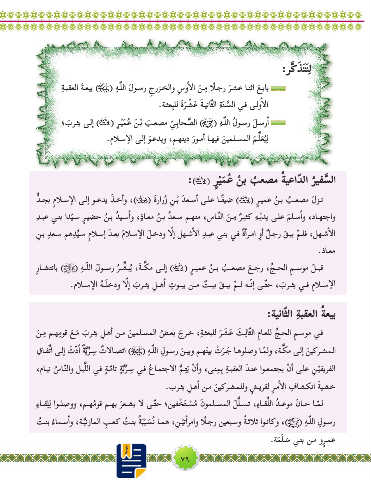 لِنَتَذَكَّر:
بايعَ اثنا عشرَ رجلًا مِنَ الأوسِ والخزرجِ رسولَ اللَّهِ (ﷺ) بيعةَ العقبةِ
الأولى في السَّنَةِ الثّانيةَ عَشْرَةَ للبعثة.
أرسلَ رسولُ اللَّهِ (ﷺ) الصَّحابيَّ مصعبَ بْنَ عُمَيْرٍ إلى يثربَ؛
ليُعلِّمَ المسلمينَ فيها أمورَ دينِهم، ويدعوَ إلى الإسلامِ.
السَّفيرُ الدّاعيةُ مصعبُ بنُ عُمَيْرٍ:
نزلَ مصعبُ بنُ عميرٍ ضيفًا على أسعدَ بْنِ زُرارةَ، وأخذَ يدعو إلى الإسلامِ بجدٍّ
واجتهادٍ، وأسلمَ على يدَيْهِ كثيرٌ مِنَ النّاسِ، منهم سعدُ بنُ معاذٍ، وأُسيدُ بنُ حضيرٍ سيِّدا بني عبدِ
الأشهلِ، فلمْ يبقَ رجلٌ أوِ امرأةٌ في بني عبدِ الأشهلِ إلّا ودخلَ الإسلامَ بعدَ إسلامِ سيِّدِهم سعدِ بنِ
معاذ.
قبلَ موسمِ الحجِّ، رجعَ مصعبُ بنُ عميرٍ إلى مكَّةَ، يُبشِّرُ رسولَ اللَّهِ (ﷺ) بانتشارِ
الإسلامِ في يثربَ، حتّى إنَّه لمْ يبقَ بيتٌ مِن بيوتِ أهلِ يثربَ إلّا ودخلَهُ الإسلامُ.
بيعةُ العقبةِ الثّانية:
في موسمِ الحجِّ للعامِ الثّالثَ عَشَرَ للبعثةِ، خرجَ بعضُ المسلمينَ مِن أهلِ يثربَ معَ قومِهم مِنَ
المشركينَ إلى مكَّةَ، ولمّا وصلوها جَرَتْ بينَهم وبينَ رسولِ اللَّهِ (ﷺ) اتصالاتٌ سِرِّيَّةٌ أدَّتْ إلى اتِّفاقِ
الفريقَيْنِ على أنْ يجتمعوا عندَ العقبةِ بمِنى، وأنْ يَتِمَّ الاجتماعُ في سِرِّيَّةٍ تامّةٍ في اللَّيلِ والنّاسُ نيام،
خشيةَ انكشافِ الأمرِ لقريشٍ وللمشركينَ مِن أهلِ يثربَ.
لمّا حانَ موعدُ اللِّقاءِ، تسلَّلَ المسلمونَ مُسْتَخْفينَ؛ حتّى لا يشعرَ بهم قومُهم، ووصلوا لِلِقاءِ
رسولِ اللَّهِ (ﷺ)، وكانوا ثلاثةً وسبعينَ رجلًا وامرأتَيْنِ، هما نُسَيْبَةُ بنتُ كعبٍ المازنيّة، وأسماءُ بنتُ
عمرٍو مِن بني سَلَمَة.
٧٩